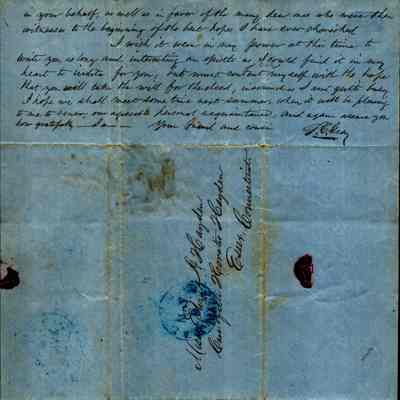 in your behalf, as well as in favor of the many dear ones who were then
witnesses to the beginning of the best hope I have ever cherished
I wish it were in my power at this time to
write you as long and interesting an epistle as I could find it in my
heart to indite for you, but must content myself with the hope
that you will take the will for the deed, inasmuch as I am quite busy.
I hope we shall meet some time next summer, when it will be pleasing
to me to renew our agreeable personal acquaintance, and again assure you
how gratefully I am Your friend and cousin
Miss J. Hayden
Care of Horatio Hayden
Essex, Connecticut